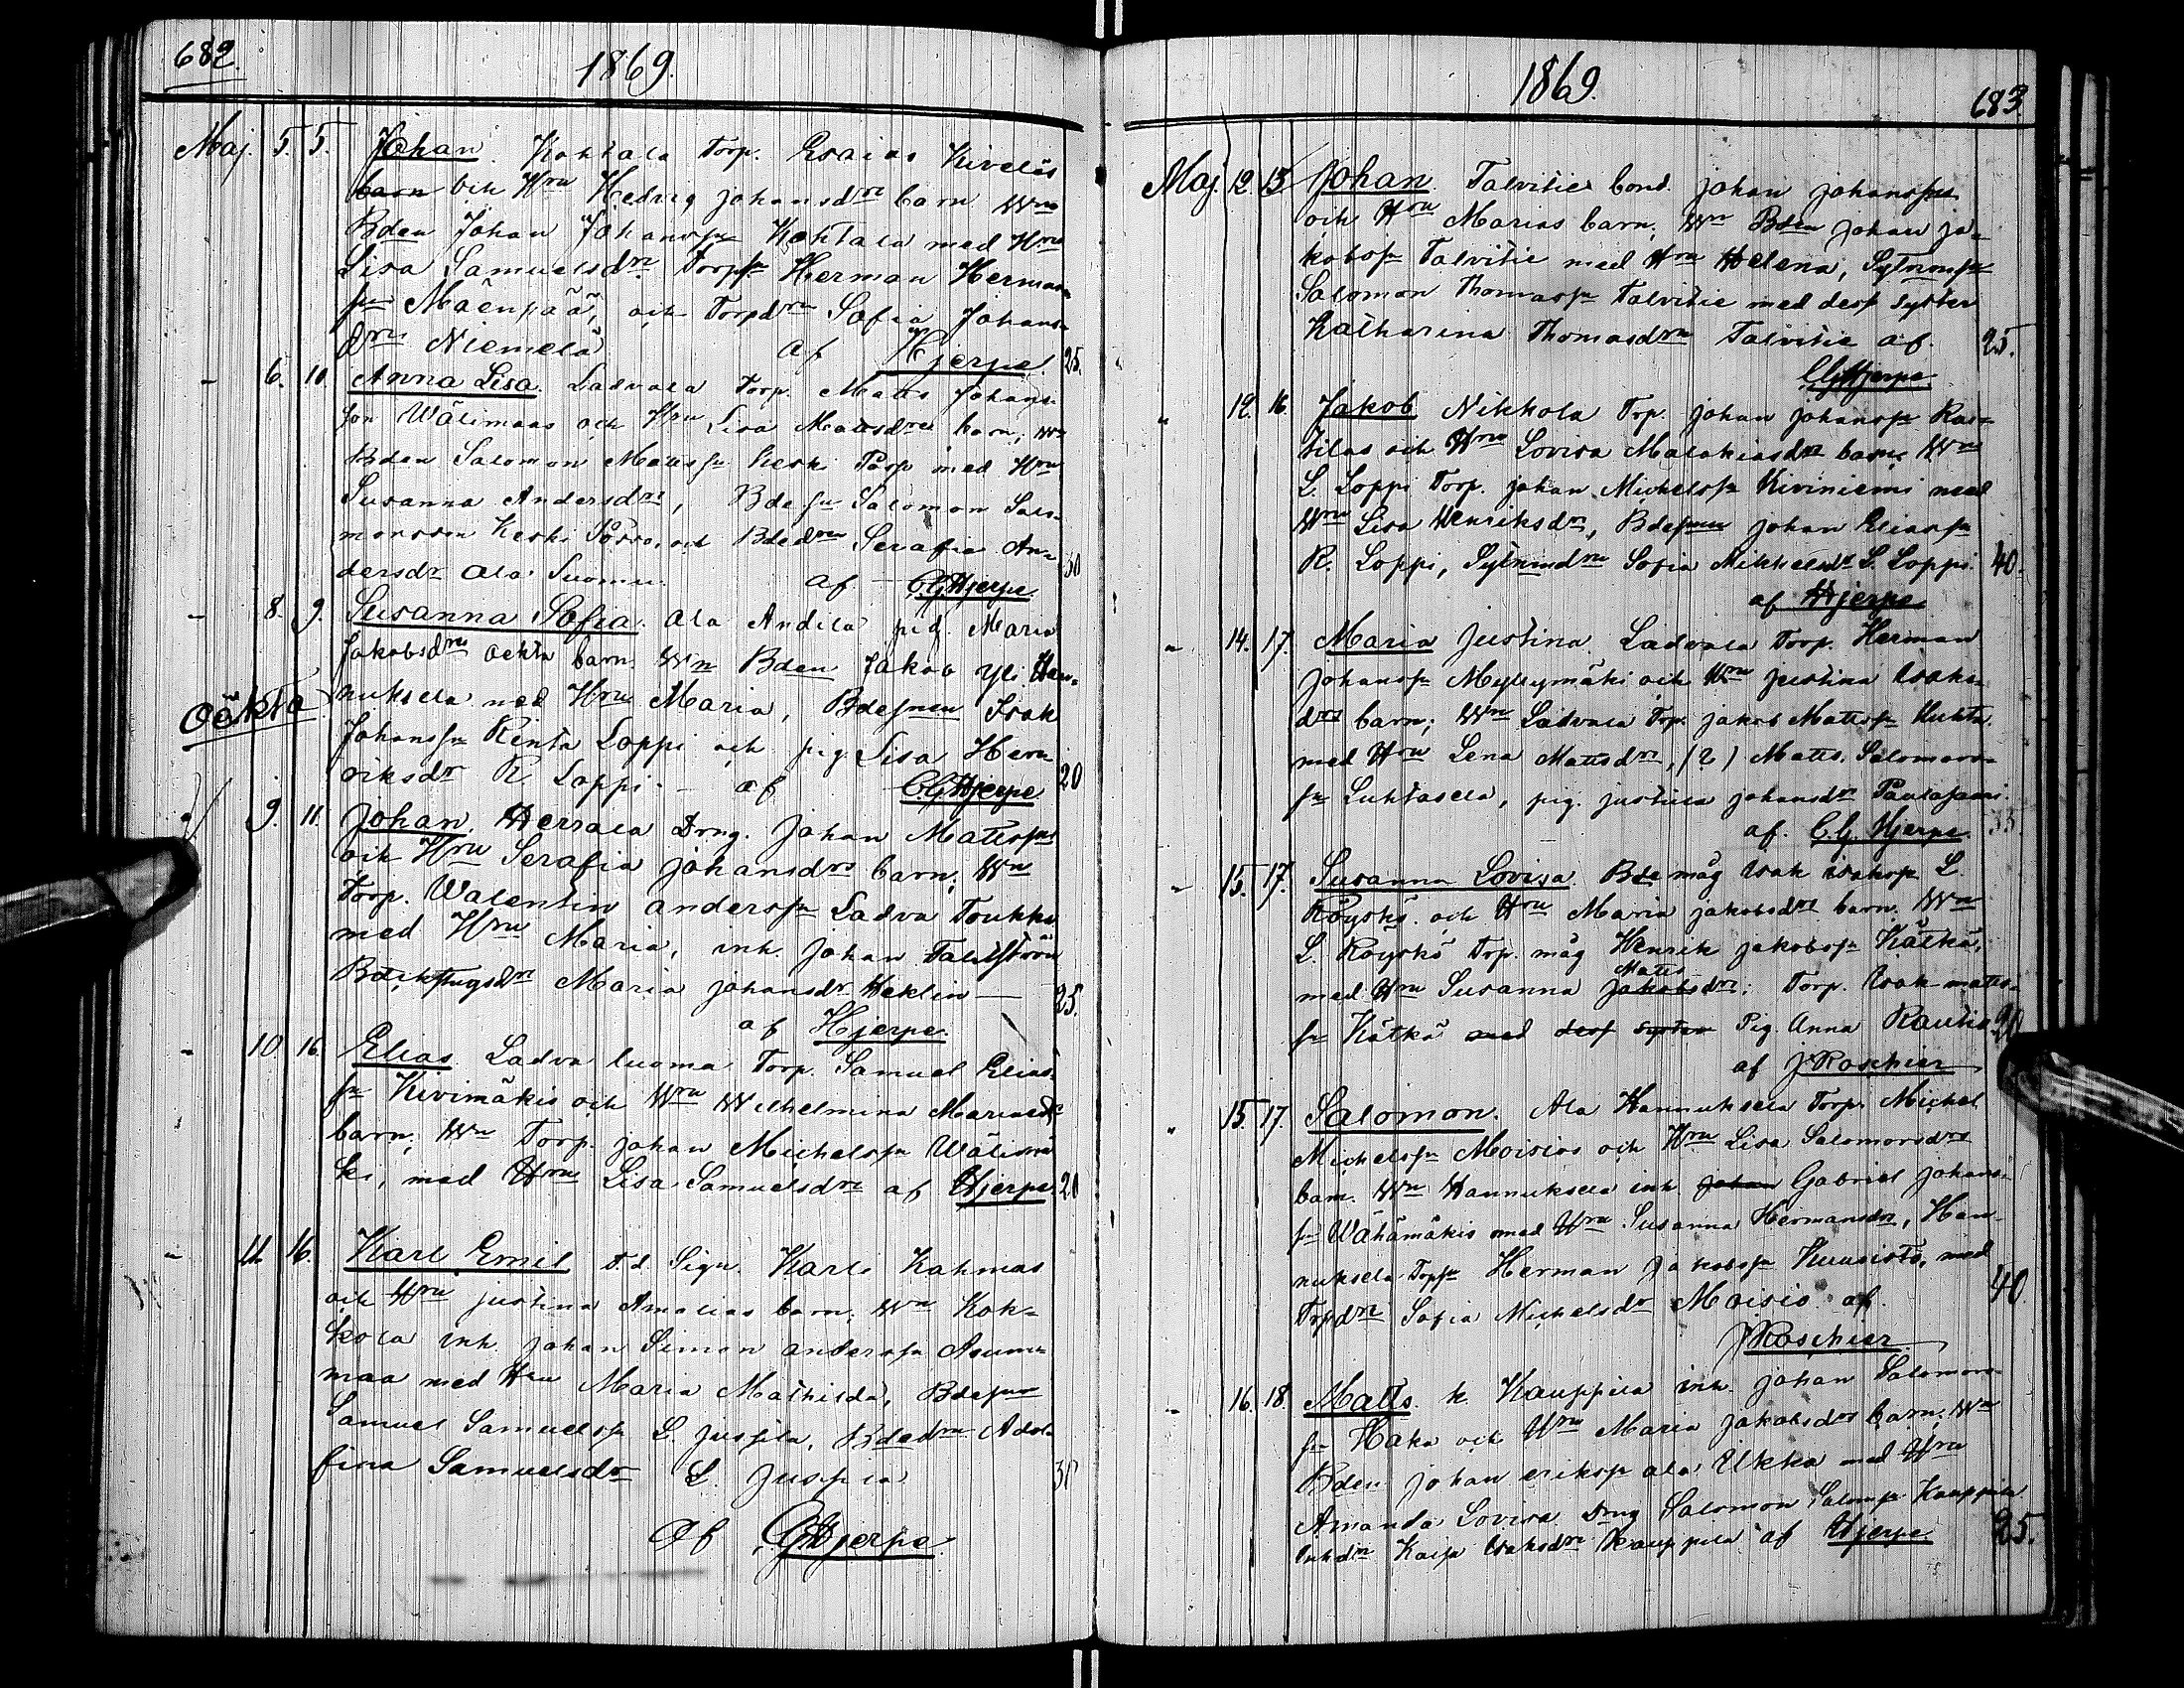 682.
1869.
Maj. 5. 5. Johan. Kohtala Torp. Esaias Kiveläs
barn och Hru Hedvig Johansdrs barn Wne
Bden Johan Johanssn Kohtala med Hru
Lisa Samuelsdr Torpsn Herman Herman
sn Mäenpää, och Torpdrn Sofia Johans-
drs Niemelä af Hjerpe 25.
- 6. 10. Anna Lisa. Ladvala Torp. Matts Johans
son Wälimaas och Hru Lisa Mattsdrs barn; Wn
Bden Salomon Mattssn Keski Passi med Hru
Susanna Andersdr, Bdesn Salomon Salo-
monsson Keski och Bdedrn Serafia An-
dersdr Ala Suomu. af C G Hjerpe
- 8. 9. Susanna Sofia. Ala Andila pig. Maria
Jakobsdrs oekta barn Wn Bden Jakob Yli Han-
nuksela med Hru Maria, Bdesnen Isak
oäkta
Johanssn Rinta Loppi och pig Lisa Hen
riksdr R. Loppi. - af C.G. Hjerpe 20
9. 11. Johan. Herrala Drng. Johan Mattssns
och Hru Serafia Johansdrs barn; Wn
Torp. Walentin Anderssn Ladva Toukka
med Hru Maria, inh. Johan Tahlström
Backstugsdr Maria Johansdr Heklin — 25.
af Hjerpe
- 10 16. Elias Ladva luoma Torp. Samuel Elias
sn Kivimäkis och Hru Wilhelmina Mariasdr
barn; Wn Torp. Johan Michelssn Wälimä
ki, med Hru Lisa Samuelsdr af Hjerpe 20
- 11. 16. Karl Emil t.d. Sign. Karl Kahmas
och Hru Justina Amalias barn; Wn Kok-
kola inh Johan Simon Anderssn Asunu
maa med Hru Maria Mathilda, Bdesn
Samuel Samuelssn L. Jussila, Bdedrn Adol
fina Samuelsdr L. Jussila 30
Af C G Hjerpe
1869.
683
Maj. 12. 13 Johan. Talvitie bond. Johan Johanssns
och Hru Marias barn; Wn Bden Johan Ja-
kobssn Talvitie med Hru Helena, Sytnimssn
Salomon Thomassn Talvitie med dess syster
Katharina Thomasdrn Talvitie af. 25.
C G Hjerpe
" 12. 16. Jakob Nikkola Trp. Johan Johanssn Ras-
tilas och Hru Lovisa Malakiasdr barn; Wne
L. Loppi Torp. Johan Michelssn Kiviniemi med
Hru Lisa Henriksdr, Bdesnen Johan Eliassn
R. Loppi, Sytnimdrn Sofia Mikkelsdr L. Loppi. 40.
af Hjerpe
" 14. 17. Maria Justina. Ladvala Torp. Herman
Johanssn Myllymäki och Hru Justina Isaks-
drs barn; Wn Ladvala Trp. Jakob Mattssn Huhta
med Hru Lena Mattsdr, (2) Matts Salomons-
sn Luhtasela, pig. Justina Johansdr Paulasaari.
af. C. G. Hjerpe 35.
" 15. 17. Susanna Lovisa. Bde måg Isak Isakssn L.
Röyskö och Hru Maria Jakobsdrs barn; Wn
L. Röyskö Trp. måg Henrik Jakobssn Kätkä,
Matts
med Hru Susanna Jakobsdr; Torp. Isak Matts-
sn Kätkä med dess syster Pig. Anna Rautio 20
af J Roschier
" 15. 17. Salomon. Ala Hannuksela Torp. Michel
Michelssn Moisios och Hru Lisa Salomonsdrs
barn. Wn Hannuksela inh Johan Gabriel Johans-
sn Wähämäkis med Hru Susanna Hermansdr, Han-
nuksela Trpsn Herman Jakobssn Kuusisto, med
Trpdrn Sofia Michelsdr Moisio af. 40
J Roschier
- 16. 18. Matts. k. Kauppila inh. Johan Salomons-
sn Haka och Hru Maria Jakobsdrs barn; Wn
Bden Johan Erikssn Ala Ukka med Hru
Amanda Lovisa Drng Salomon Salomssn Kauppila
Inhdrn Kaisa Isaksdr Kauppila af Hjerpe 25.